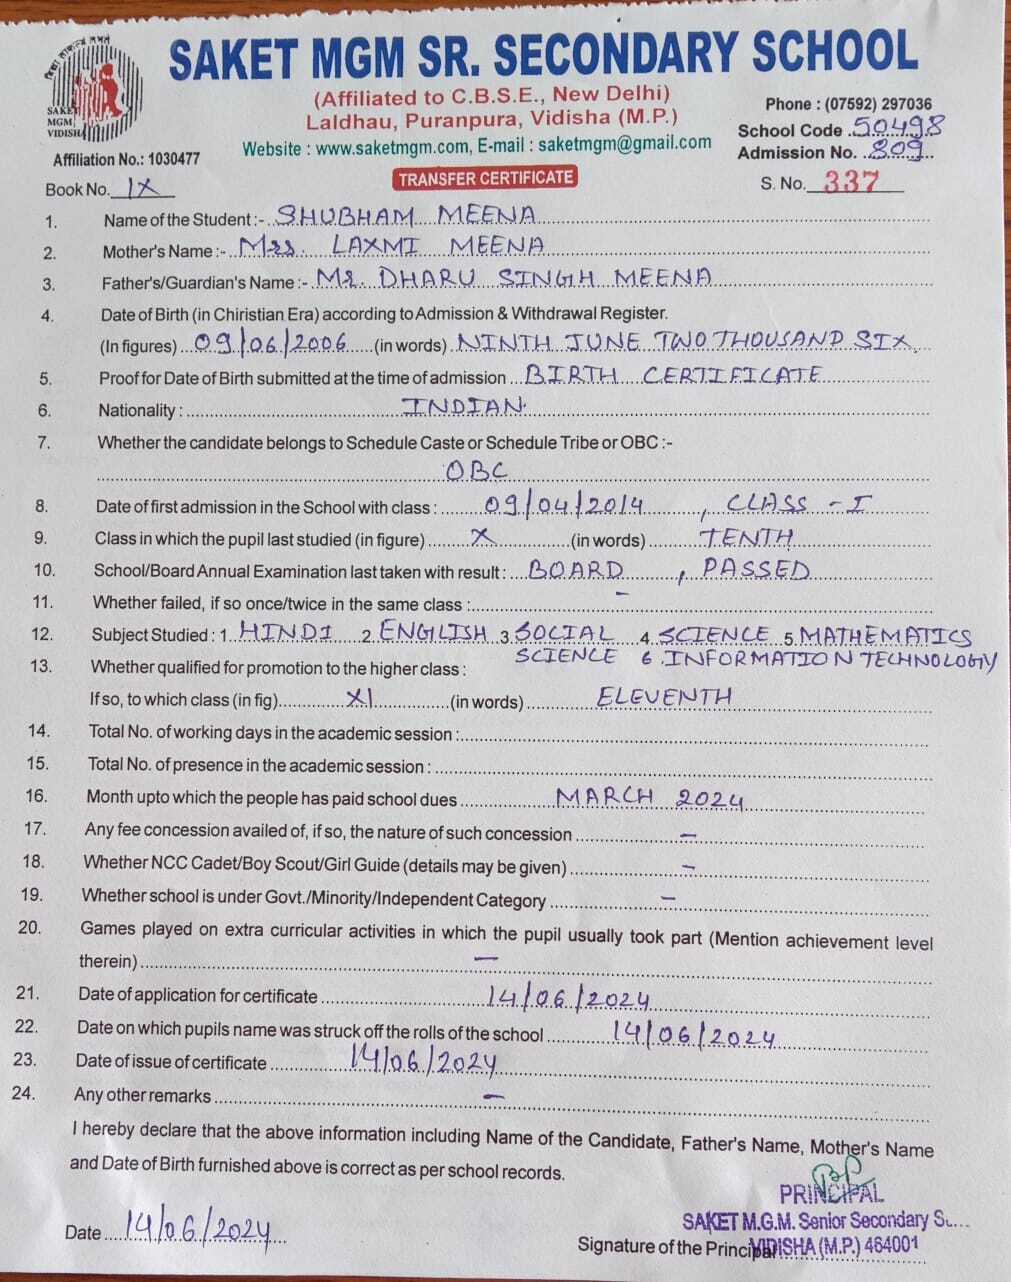 SAKET MGM SR. SECONDARY SCHOOL
(Affiliated to C.B.S.E., New Delhi)
Laldhau, Puranpura, Vidisha (M.P.)
Website : www.saketmgm.com, E-mail : saketmgm@gmail.com
SAKET
MGM
VIDISHA
Phone : (07592) 297036
School Code 50498
Admission No. 809
Affiliation No.: 1030477
Book No. IX
TRANSFER CERTIFICATE
S. No. 337
1. Name of the Student :- SHUBHAM MEENA
2. Mother's Name :- Mrs. LAXMI MEENA
3. Father's/Guardian's Name :- Mr. DHARU SINGH MEENA
4. Date of Birth (in Chiristian Era) according to Admission & Withdrawal Register.
(In figures) 09/06/2006 (in words) NINTH JUNE TWO THOUSAND SIX
5. Proof for Date of Birth submitted at the time of admission BIRTH CERTIFICATE
6. Nationality : INDIAN
7. Whether the candidate belongs to Schedule Caste or Schedule Tribe or OBC :-
OBC
8. Date of first admission in the School with class : 09/04/2014 , CLASS - I
9. Class in which the pupil last studied (in figure) X (in words) TENTH
10. School/Board Annual Examination last taken with result : BOARD , PASSED
11. Whether failed, if so once/twice in the same class : -
12. Subject Studied : 1. HINDI 2. ENGLISH 3. SOCIAL 4. SCIENCE 5. MATHEMATICS
SCIENCE 6. INFORMATION TECHNOLOGY
13. Whether qualified for promotion to the higher class :
If so, to which class (in fig) XI (in words) ELEVENTH
14. Total No. of working days in the academic session :
15. Total No. of presence in the academic session :
16. Month upto which the people has paid school dues MARCH 2024
17. Any fee concession availed of, if so, the nature of such concession -
18. Whether NCC Cadet/Boy Scout/Girl Guide (details may be given) -
19. Whether school is under Govt./Minority/Independent Category -
20. Games played on extra curricular activities in which the pupil usually took part (Mention achievement level
therein) -
21. Date of application for certificate 14/06/2024
22. Date on which pupils name was struck off the rolls of the school 14/06/2024
23. Date of issue of certificate 14/06/2024
24. Any other remarks -
I hereby declare that the above information including Name of the Candidate, Father's Name, Mother's Name
and Date of Birth furnished above is correct as per school records.
PRINCIPAL
SAKET M.G.M. Senior Secondary
Date 14/06/2024
Signature of the Principal VIDISHA (M.P.) 464001